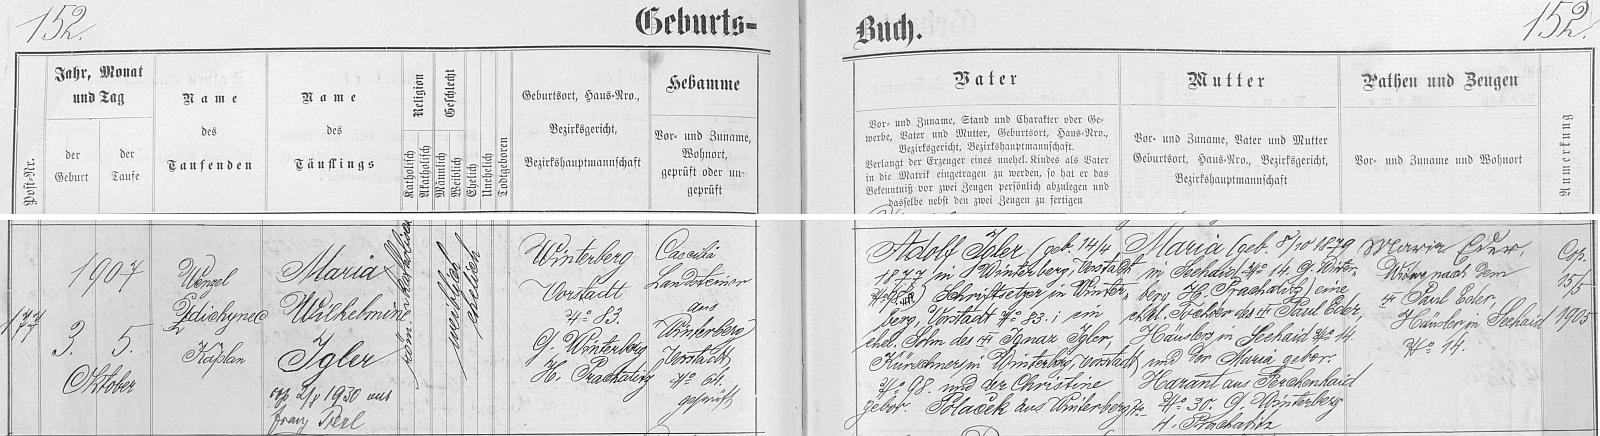 152.
Geburts-
Buch.
152.
Post-Nr.
Jahr, Monat
und Tag
der
Geburt
der
Taufe
Name
des
Taufenden
Name
des
Täuflings
Religion
Katholisch
Akatholisch
Geschlecht
Männlich
Weiblich
Ehelich
Unehelich
Todtgeboren
Geburtsort, Haus-Nro.,
Bezirksgericht,
Bezirkshauptmannschaft
Hebamme
Vor- und Zuname,
Wohnort,
geprüft oder un-
geprüft
Vater
Vor- und Zuname, Stand und Charakter oder Ge-
werbe, Vater und Mutter, Geburtsort, Haus-Nro.,
Bezirksgericht, Bezirkshauptmannschaft.
Verlangt der Erzeuger eines unehel. Kindes als Vater
in die Matrik eingetragen zu werden, so hat er das
Bekenntniß vor zwei Zeugen persönlich abzulegen und
dasselbe nebst den zwei Zeugen zu fertigen
Mutter
Vor- und Zuname, Vater und Mutter
Geburtsort, Haus-Nro., Bezirksgericht,
Bezirkshauptmannschaft
Pathen und Zeugen
Vor- und Zuname und Wohnort
Anmerkung
177
1907
3. 5.
Oktober
Wenzel
Zdichynec
Kaplan
Maria
Wilhelmine
Igler
cop. 1930 mit
Franz
röm. katholisch
weiblich
ehelich
Winterberg
Vorstadt
No 83.
G. Winterberg
H. Prachatitz
Caecilia
Landsteiner
aus
Winterberg
Vorstadt
No 64.
geprüft
Adolf Igler (geb. 14/4
1877 in Winterberg, Vorstadt
Schriftsetzer in Winter-
berg, Vorstadt No 83. ein
ehel. Sohn des † Ignaz Igler,
Kürschners in Winterberg, Vorstadt
No 98. und der Christine
gebor. Polaček aus Winterberg
Maria (geb. 8/10 1879
in Seehaid No 14. G. Winter-
berg H. Prachatitz) eine
ehel. Tochter des † Paul Eder,
Häuslers in Seehaid No 14.
und der Maria gebor.
Harant aus Ferchenhaid
No 30. G. Winterberg
H. Prachatitz
Maria Eder,
Witwe nach dem
† Paul Eder,
Häusler in Seehaid
No 14.
Cop.
15/5
1905